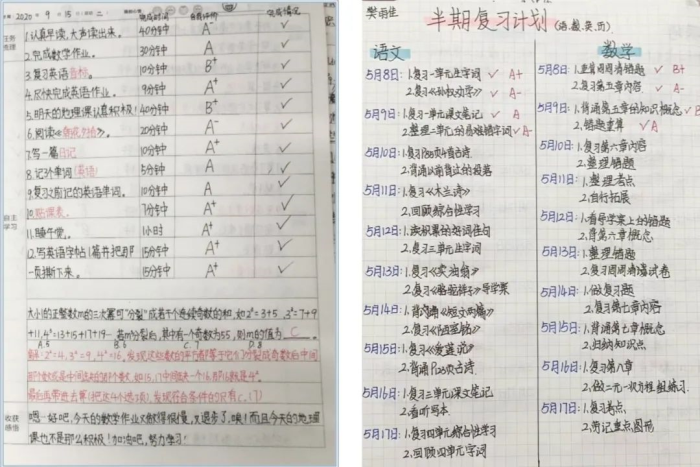 2020年9月15 二 完成时间 自我评价 完成情况
任务
1.认真早读,大声读出来。 40分钟 A⁻ ✓
2.完成数学作业。 30分钟 A ✓
3.复习英语音标。 10分钟 B⁺ ✓
4.尽快完成英语作业。 9分钟 A⁺ ✓
5.明天的地理课认真积极! 40分钟 B⁺ ✓
6.阅读《朝花夕拾》。 20分钟 A⁻ ✓
7.写一篇日记 10分钟 A⁺ ✓
8.记外单词(英语) 5分钟 A ✓
9.复习之前记的英语单词。 10分钟 A ✓
自主
学习
10.贴课表. 7分钟 A⁺ ✓
11.睡午觉。 1小时 A⁺ ✓
12.写英语字帖1篇并把那 15分钟 A⁺ ✓
一页撕下来。 15分钟 A⁺ ✓
大小的正整数m的三次幂可"分裂"成若干个连续奇数的和,如2³=3+5,3³=7+9
+11,4³=13+15+17+19 若m³分裂后,其中有一个奇数为55,则m的值为 C.
A.5 B.6 C.7 D.8
收获
感悟
嗯…好吧,今天的数学作业又做得很慢,又退步了,唉!而且今天的地理
课也不是那么积极!加油吧,努力学习!
樊雨佳
半期复习计划(语.数.英.历)
语文
5月8日:1.复习一单元生字词 ✓ A+
2.复习《孙权劝学》 ✓ A-
5月9日:1.复习一单元课文笔记 ✓ A
2.整理二单元的易错错字词 ✓ A
5月10日:1.复习P25页4首古诗
2.背诵以前背过的段落
5月11日:1.复习《木兰诗》
2.回顾综合性学习
5月12日:1.读积累的好词佳句
2.复习三单元生字词
5月13日:1.复习《卖油翁》
2.复习《骆驼祥子》导学案
5月14日:1.背诵《短文两篇》
2.复习《陋室铭》
5月15日:1.复习《爱莲说》
2.背诵P25古诗
5月16日:1.复习三单元课文笔记
2.看听写本
5月17日:1.复习四单元综合性学习
2.回顾四单元字词
数学
5月8日:1.重做周周清错题 ✓ B+
2.复习第五章内容 ✓ A-
5月9日:1.背诵第五章的知识概念 ✓ B
2.错题重算 ✓ A
5月10日:1.复习第六章内容
2.整理错题
5月11日:1.整理考点
2.自行拓展
5月12日:1.看导学案上的错题
2.背第六章概念
5月13日:1.整理错题
2.复习周周清卷试卷
5月14日:1.做复习题
2.复习第七章内容
5月15日:1.背诵第七章概念
2.归纳知识点
5月16日:1.复习第八章
2.做二元一次方程组练习.
5月17日:1.复习考点
2.劳记重点图形